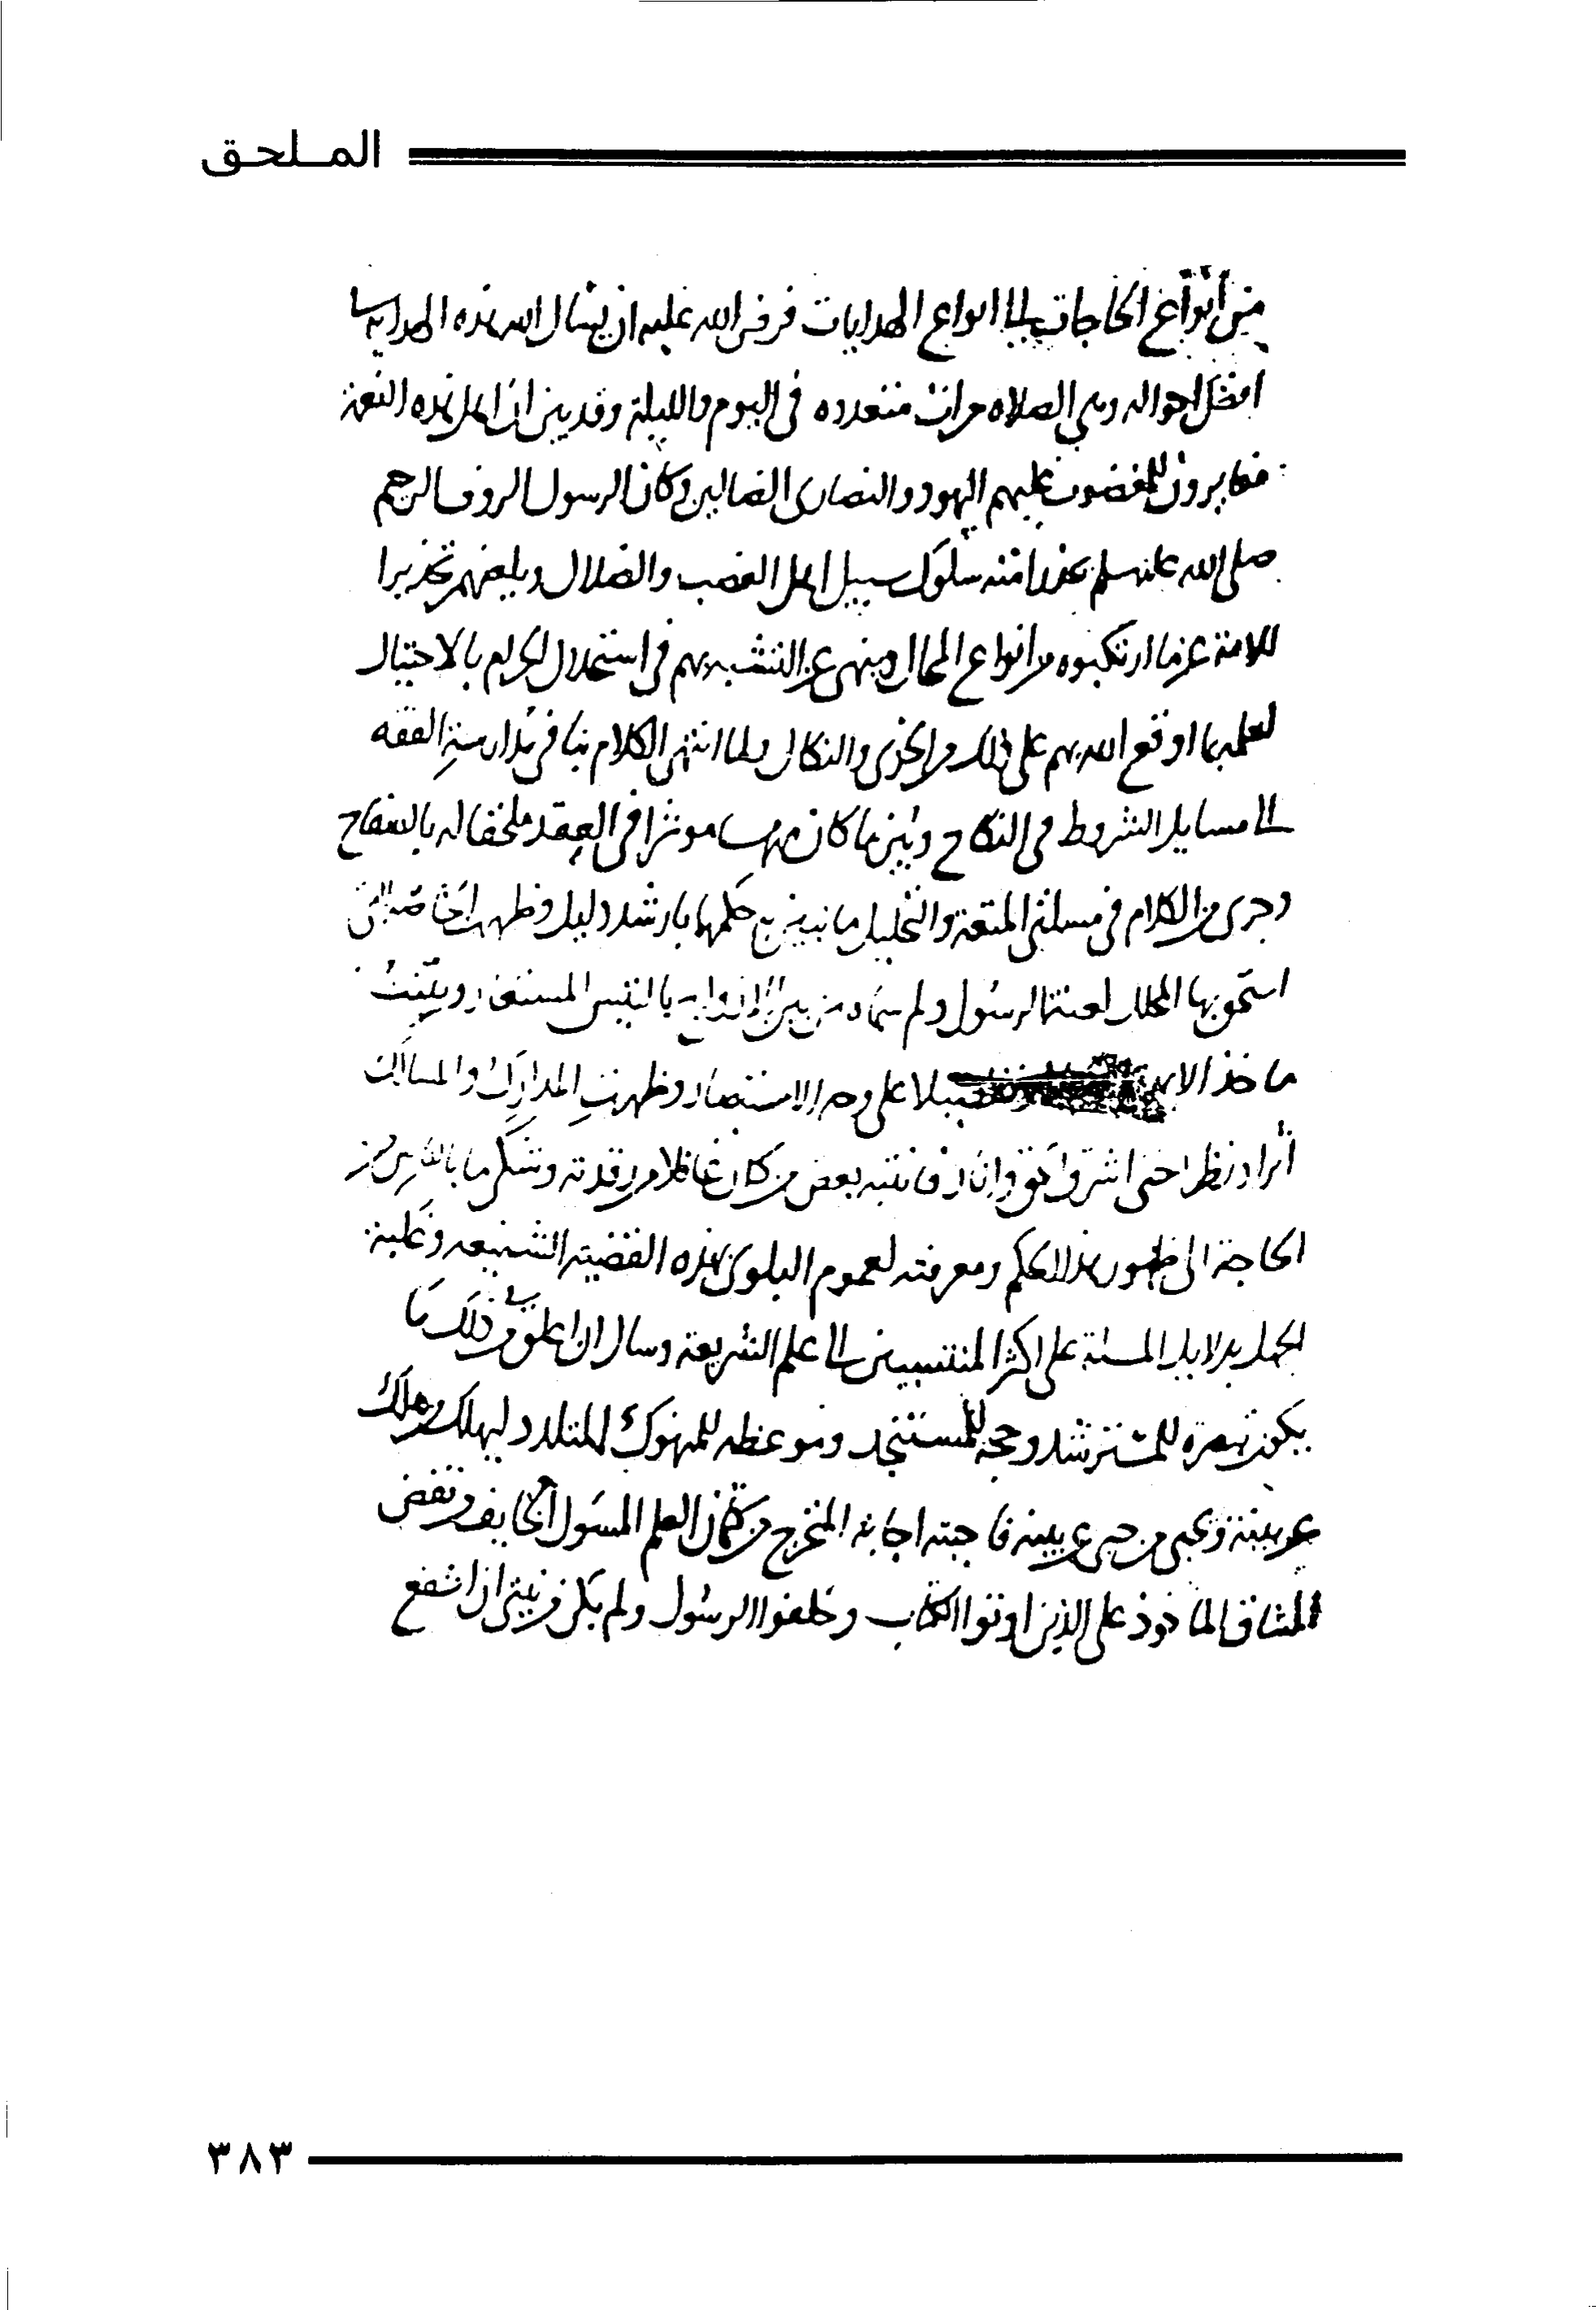 الملحق
من أنواع الحاجات إلى انواع الهدايات فرض الله عليه ان يسال الله هذه الهداية
افضل احواله وهي الصلاه مرات متعدده في اليوم والليلة وقد بين ان اهل هذه النعمة
مغايرون للمغضوب عليهم اليهود والنصارى الضالين وكان الرسول الروف الرحيم
صلى الله عليه وسلم يحذر امته سلوك سبيل اهل الغضب والضلال ويلعنهم تحذيرا
للامة عن ما ارتكبوه من انواع المحال وينهى عن التشبه بهم في استحلال المحارم بالاحتيال
لعلمه بما اوقع الله بهم على ذلك من الخزي والنكال ولما انتهى الكلام بنا في مدارسة الفقه
الى مسايل الشروط في النكاح وبين ما كان منها موثرا في العقد ملحقا له بالسفاح
وجرى من الكلام في مسلتي المتعة والتحليل ما تبين به حكمهما بارشد دليل وظهرت الخاصة التي
استحق بها المحلل لعنة الرسول ولم سماه من بين الازواج بالتيس المستعار وتبينت
ماخذ الايمة تفصيلا على وجه الاستبصار وظهرت المدارك والمسالك
أثرا ونظرا حتى اشرق الحق وانار فانتبه بعض من كان غافلا من رقدته وشكى ما بالناس من
الحاجة الى ظهور هذا الحكم ومعرفته لعموم البلوى بهذه القضية الشنيعه وغلبة
الجهل بدلايل المسلة على اكثر المنتسبين الى علم الشريعة وسال ان اعلق في ذلك ما
يكون تبصرة للمسترشد وحجة للمستنجد وموعظه للمتهوك المتلدد ليهلك من هلك
عن بينة ويحيى من حيي عن بينه فاجبته اجابة المتحرج من كتمان العلم المسول الخايف من نقض
الميثاق الماخوذ على الذين اوتوا الكتاب وخلفوا الرسول ولم يكن من نيتي ان اشفع
٣٨٣